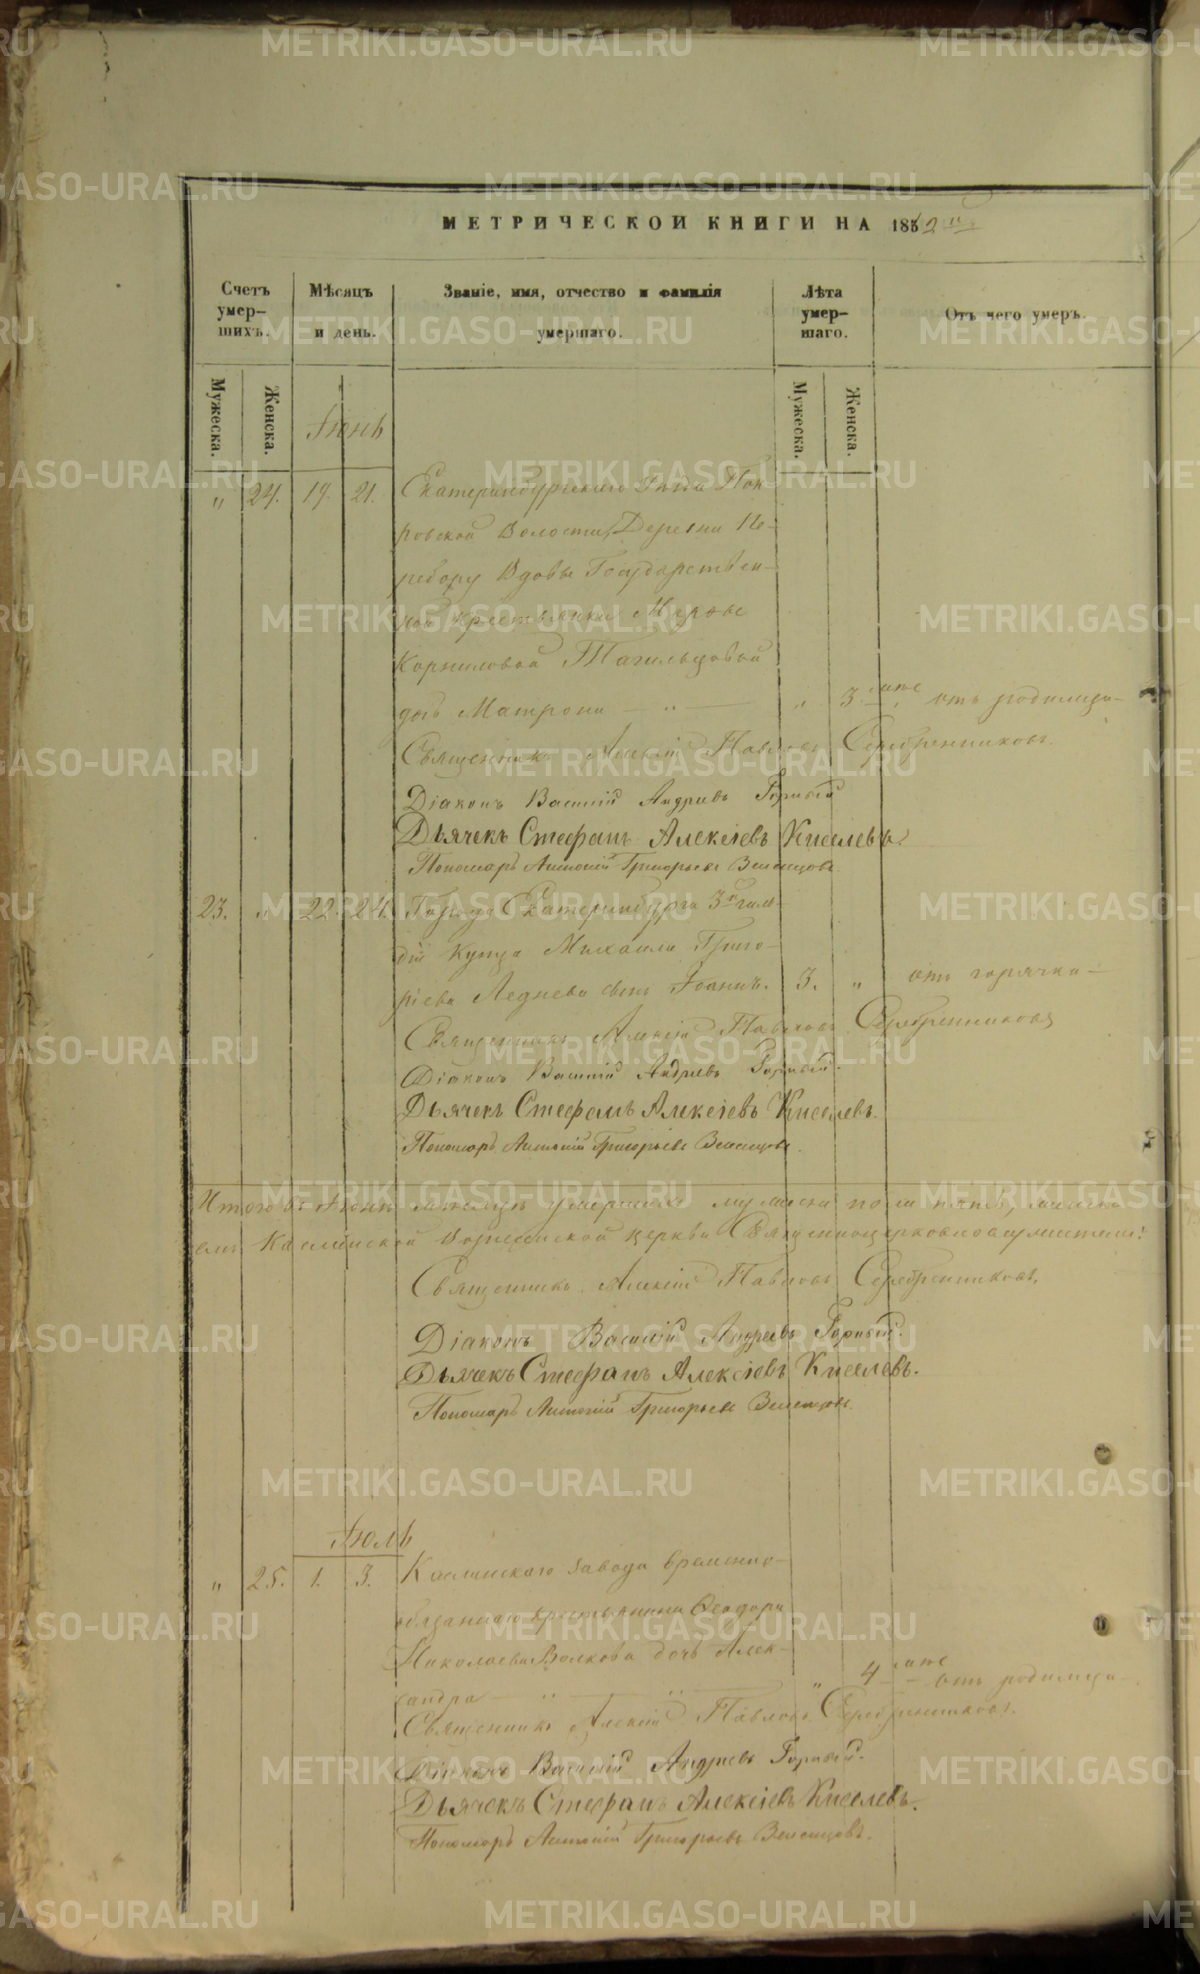 МЕТРИЧЕСКОЙ КНИГИ НА 1862 й
Счетъ умер-
шихъ.
Мѣсяцъ
и день.
Званіе, имя, отчество и фамилія
умершаго.
Лѣта
умер-
шаго.
Отъ чего умеръ.
Мужеска.
Женска.
Мужеска.
Женска.
Іюнь
" 24. 19. 21. Екатеринбургскаго Пок-
ровской Волости, Деревни Пе-
ребору Вдовы Государствен-
ной Крестьянки
Корниловой Тагильцовой
дочь Матрона — " — " 3. отъ родимца
Священникъ Алексій Павловъ Серебренниковъ.
Діаконъ Василій Андреевъ Горный
Дьячекъ Стефанъ Алексіевъ Киселевъ.
Пономарь Антоній Григорьевъ
23. " 22. 24. Города Екатеринбурга 3й гиль-
діи Купца Михаила Григо-
ріева Леднева сынъ Іоаннъ. 3. " отъ горячки
Священникъ Алексій Павловъ Серебренниковъ
Діаконъ Василій Андреевъ Горный.
Дьячекъ Стефанъ Алексіевъ Киселевъ.
Пономарь Антоній Григорьевъ
Итого въ Іюнѣ мѣсяцѣ умершихъ мужеска пола пять,
Каслинской Вознесенской церкви Священноцерковнослужители:
Священникъ Алексій Павловъ Серебренниковъ.
Діаконъ Василій Андреевъ Горный.
Дьячекъ Стефанъ Алексіевъ Киселевъ.
Пономарь Антоній Григорьевъ
Іюль
" 25. 1. 3. Каслинскаго завода временно-
обязаннаго крестьянина Ѳеодора
Николаева Волкова дочь Алек-
сандра — " — " — " 4 отъ родимца
Священникъ Алексій Павловъ Серебренниковъ.
Діаконъ Василій Андреевъ Горный.
Дьячекъ Стефанъ Алексіевъ Киселевъ.
Пономарь Антоній Григорьевъ
METRIKI.GASO-URAL.RU